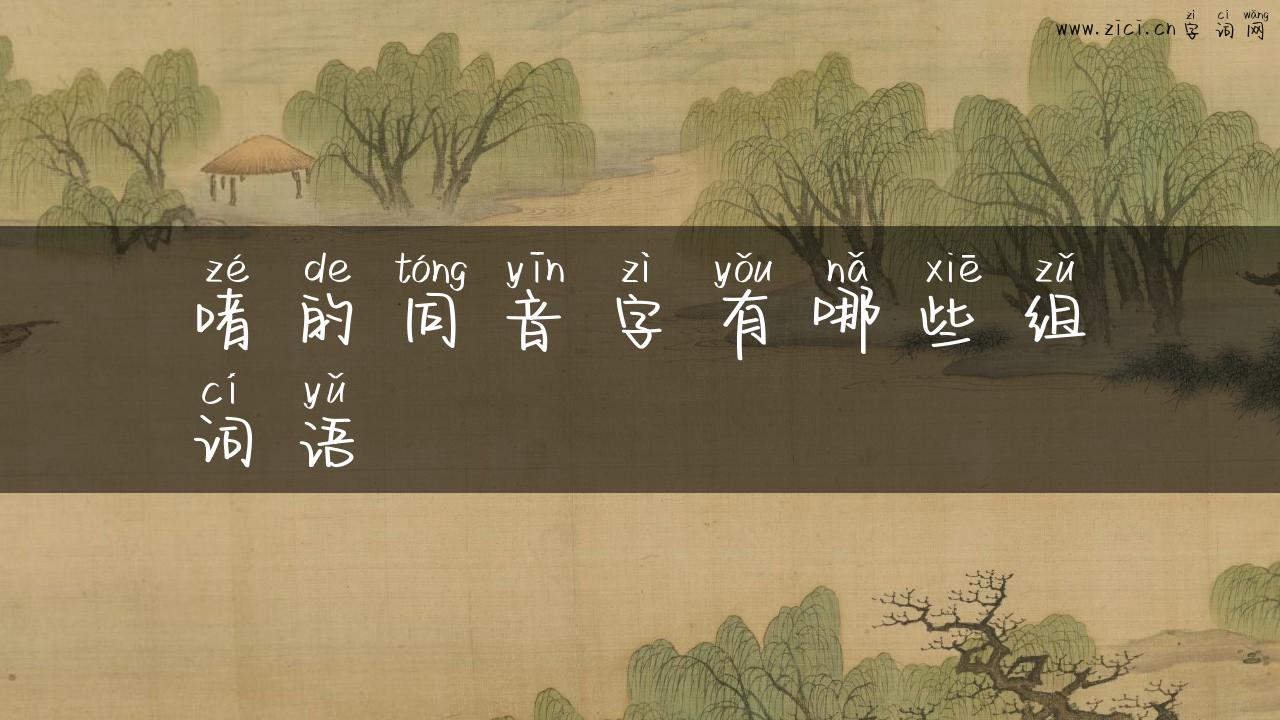 zì cí wǎng
www.zici.cn 字词网
zé de tóng yīn zì yǒu nǎ xiē zǔ
啧的同音字有哪些组
cí yǔ
词语